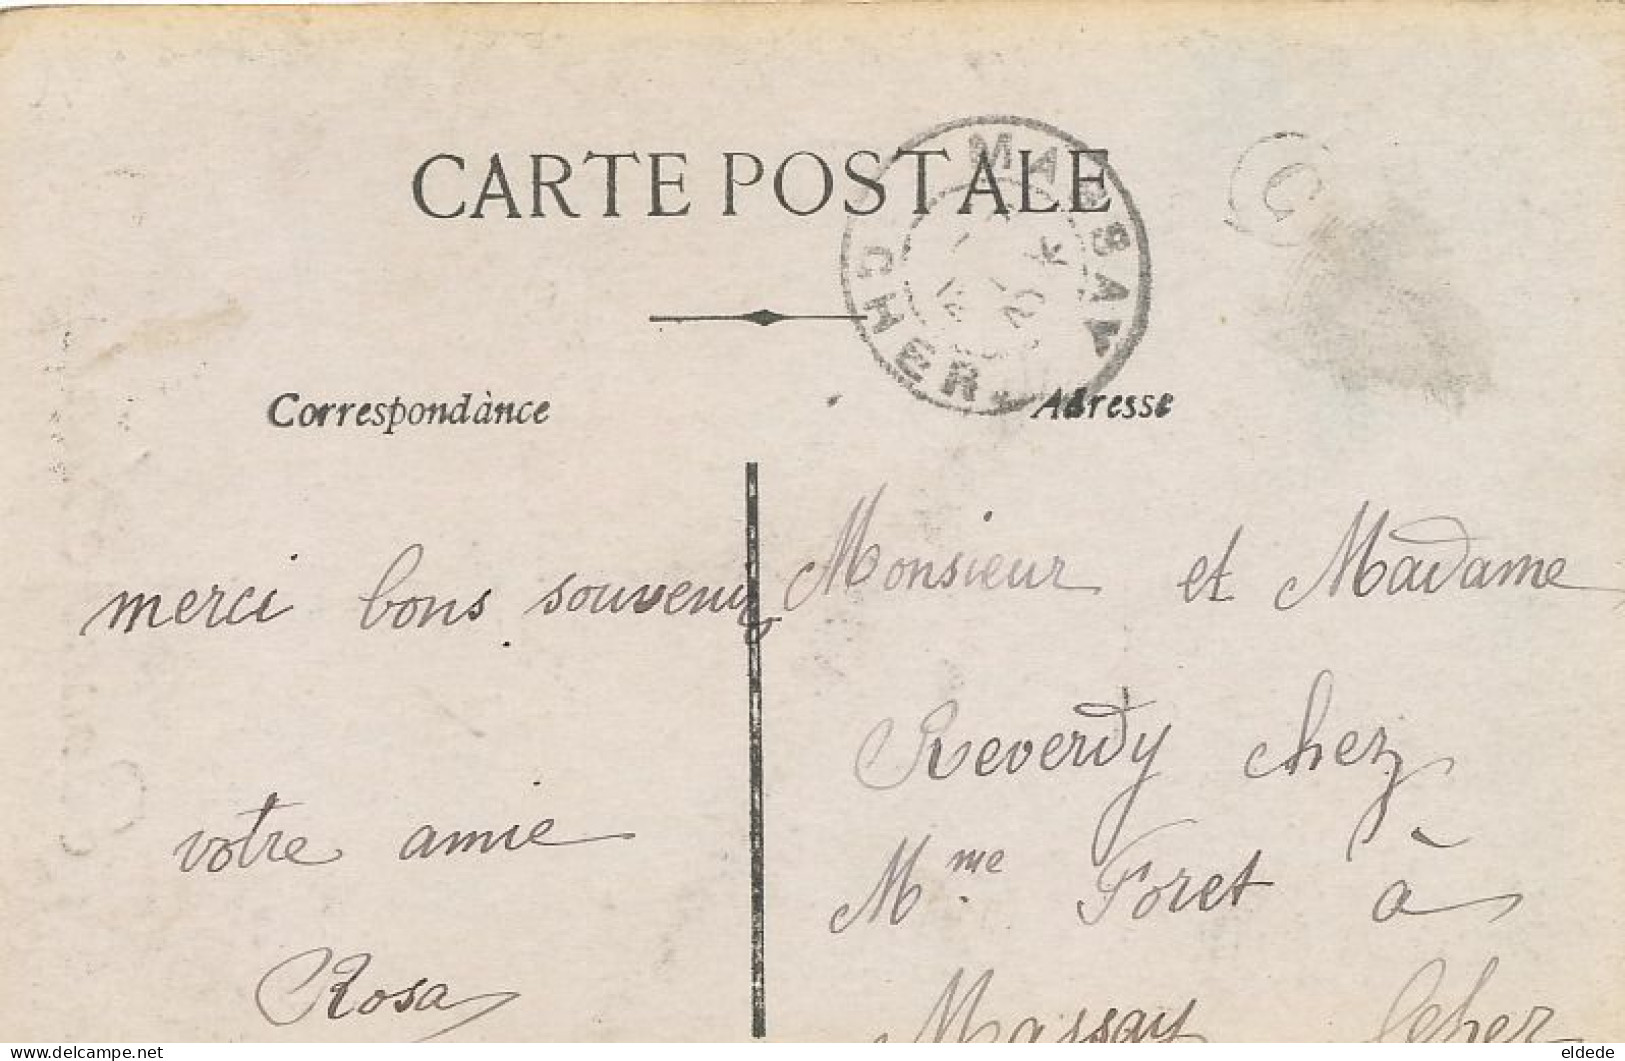 CARTE POSTALE
MASSAY
CHER
C
Correspondànce
Adresse
merci bons souvenir
votre amie
Rosa
Monsieur et Madame
Reverdy chez
Mme Foret à
Massay Cher
eldede